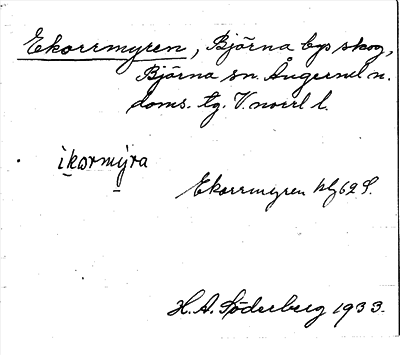 Ekorrmyren, Björna bys skog,
Björna sn. Ångerml n.
doms. tg. V. norrl l.
ikormýra
Ekorrmyren blg 62 S.
H. A. Söderberg 1933.